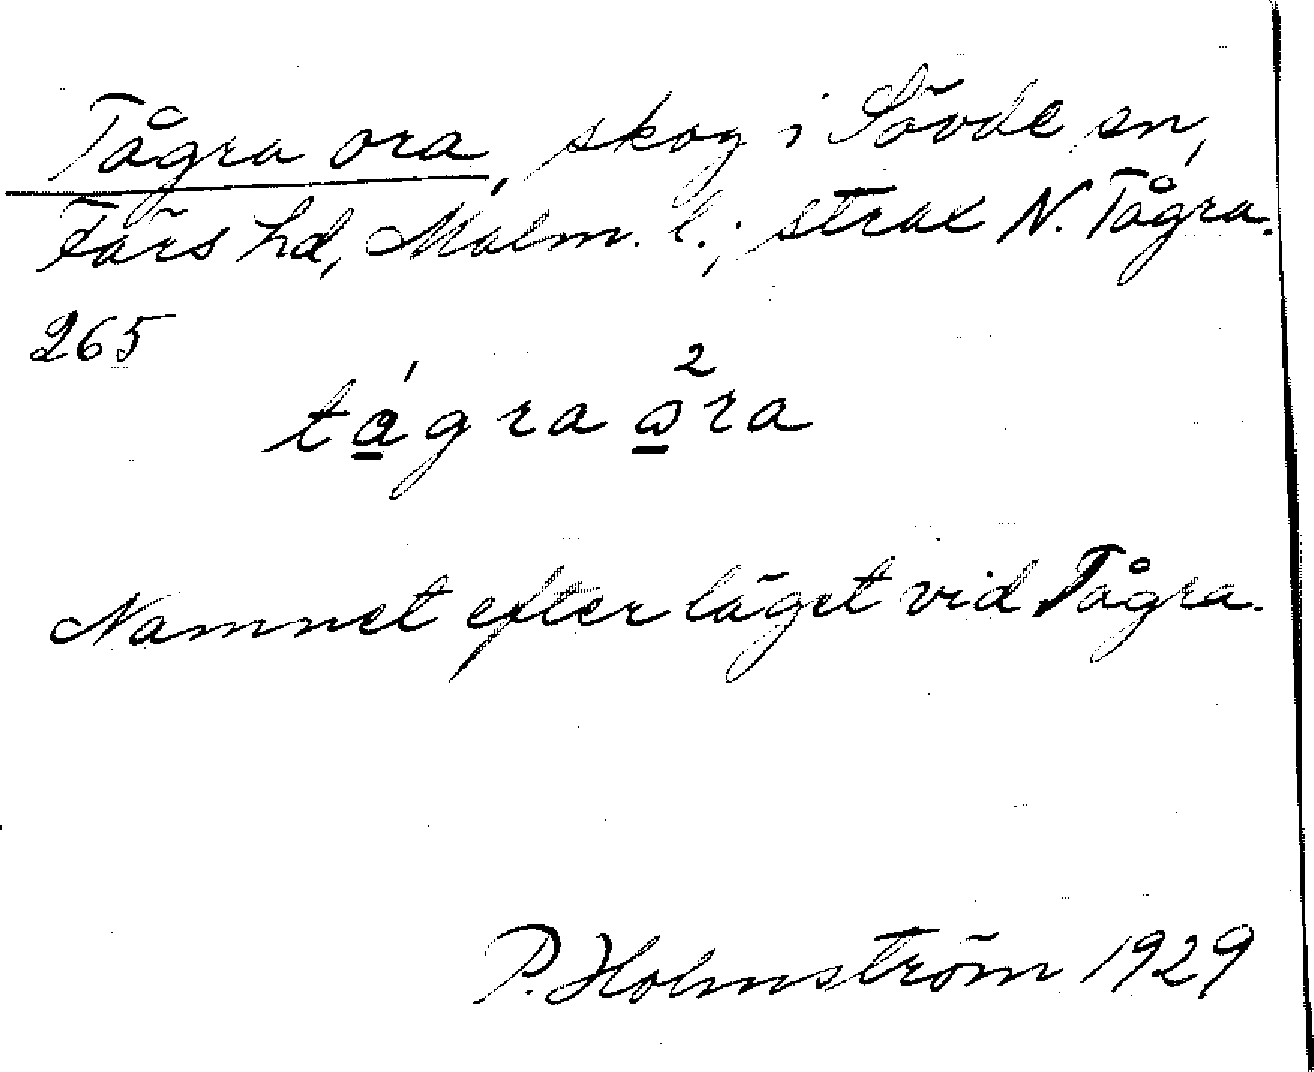 Tågra ora, skog i Sövde sn,
Färs hd, Malm. l.; strax N. Tågra.
265
tágra åra
Namnet efter läget vid Tågra.
P. Holmström 1929